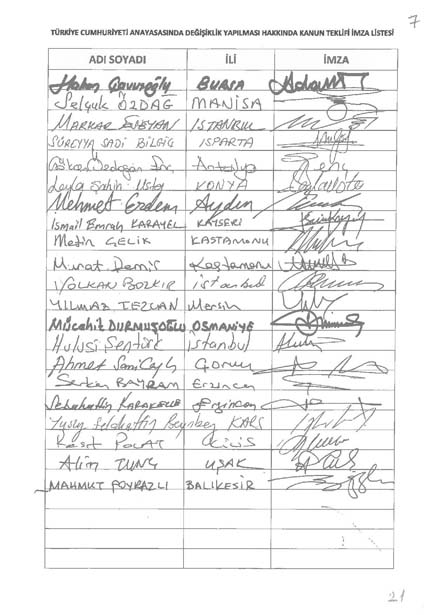 7
TÜRKİYE CUMHURİYETİ ANAYASASINDA DEĞİŞİKLİK YAPILMASI HAKKINDA KANUN TEKLİFİ İMZA LİSTESİ
ADI SOYADI İLİ İMZA
Hakan Çavuşoğlu BURSA
Selçuk ÖZDAĞ MANİSA
MARKAR ESEYAN İSTANBUL
SÜREYYA SADİ BİLGİÇ ISPARTA
Antalya
Leyla Şahin Usta KONYA
Mehmet Erdem Aydın
İsmail Emrah KARAYEL KAYSERİ
Metin ÇELİK KASTAMONU
Murat Demir Kastamonu
VOLKAN BOZKIR istanbul
YILMAZ TEZCAN Mersin
Mücahit DURMUŞOĞLU OSMANİYE
Hulusi Şentürk İstanbul
Ahmet Sami Çorum
Serkan BAYRAM Erzincan
Sebahattin KARAKELLE Erzincan
Yusuf Selahattin Beyribey KARS
Reşit POLAT KİLİS
Alim TUNÇ UŞAK
MAHMUT POYRAZLI BALIKESİR
21